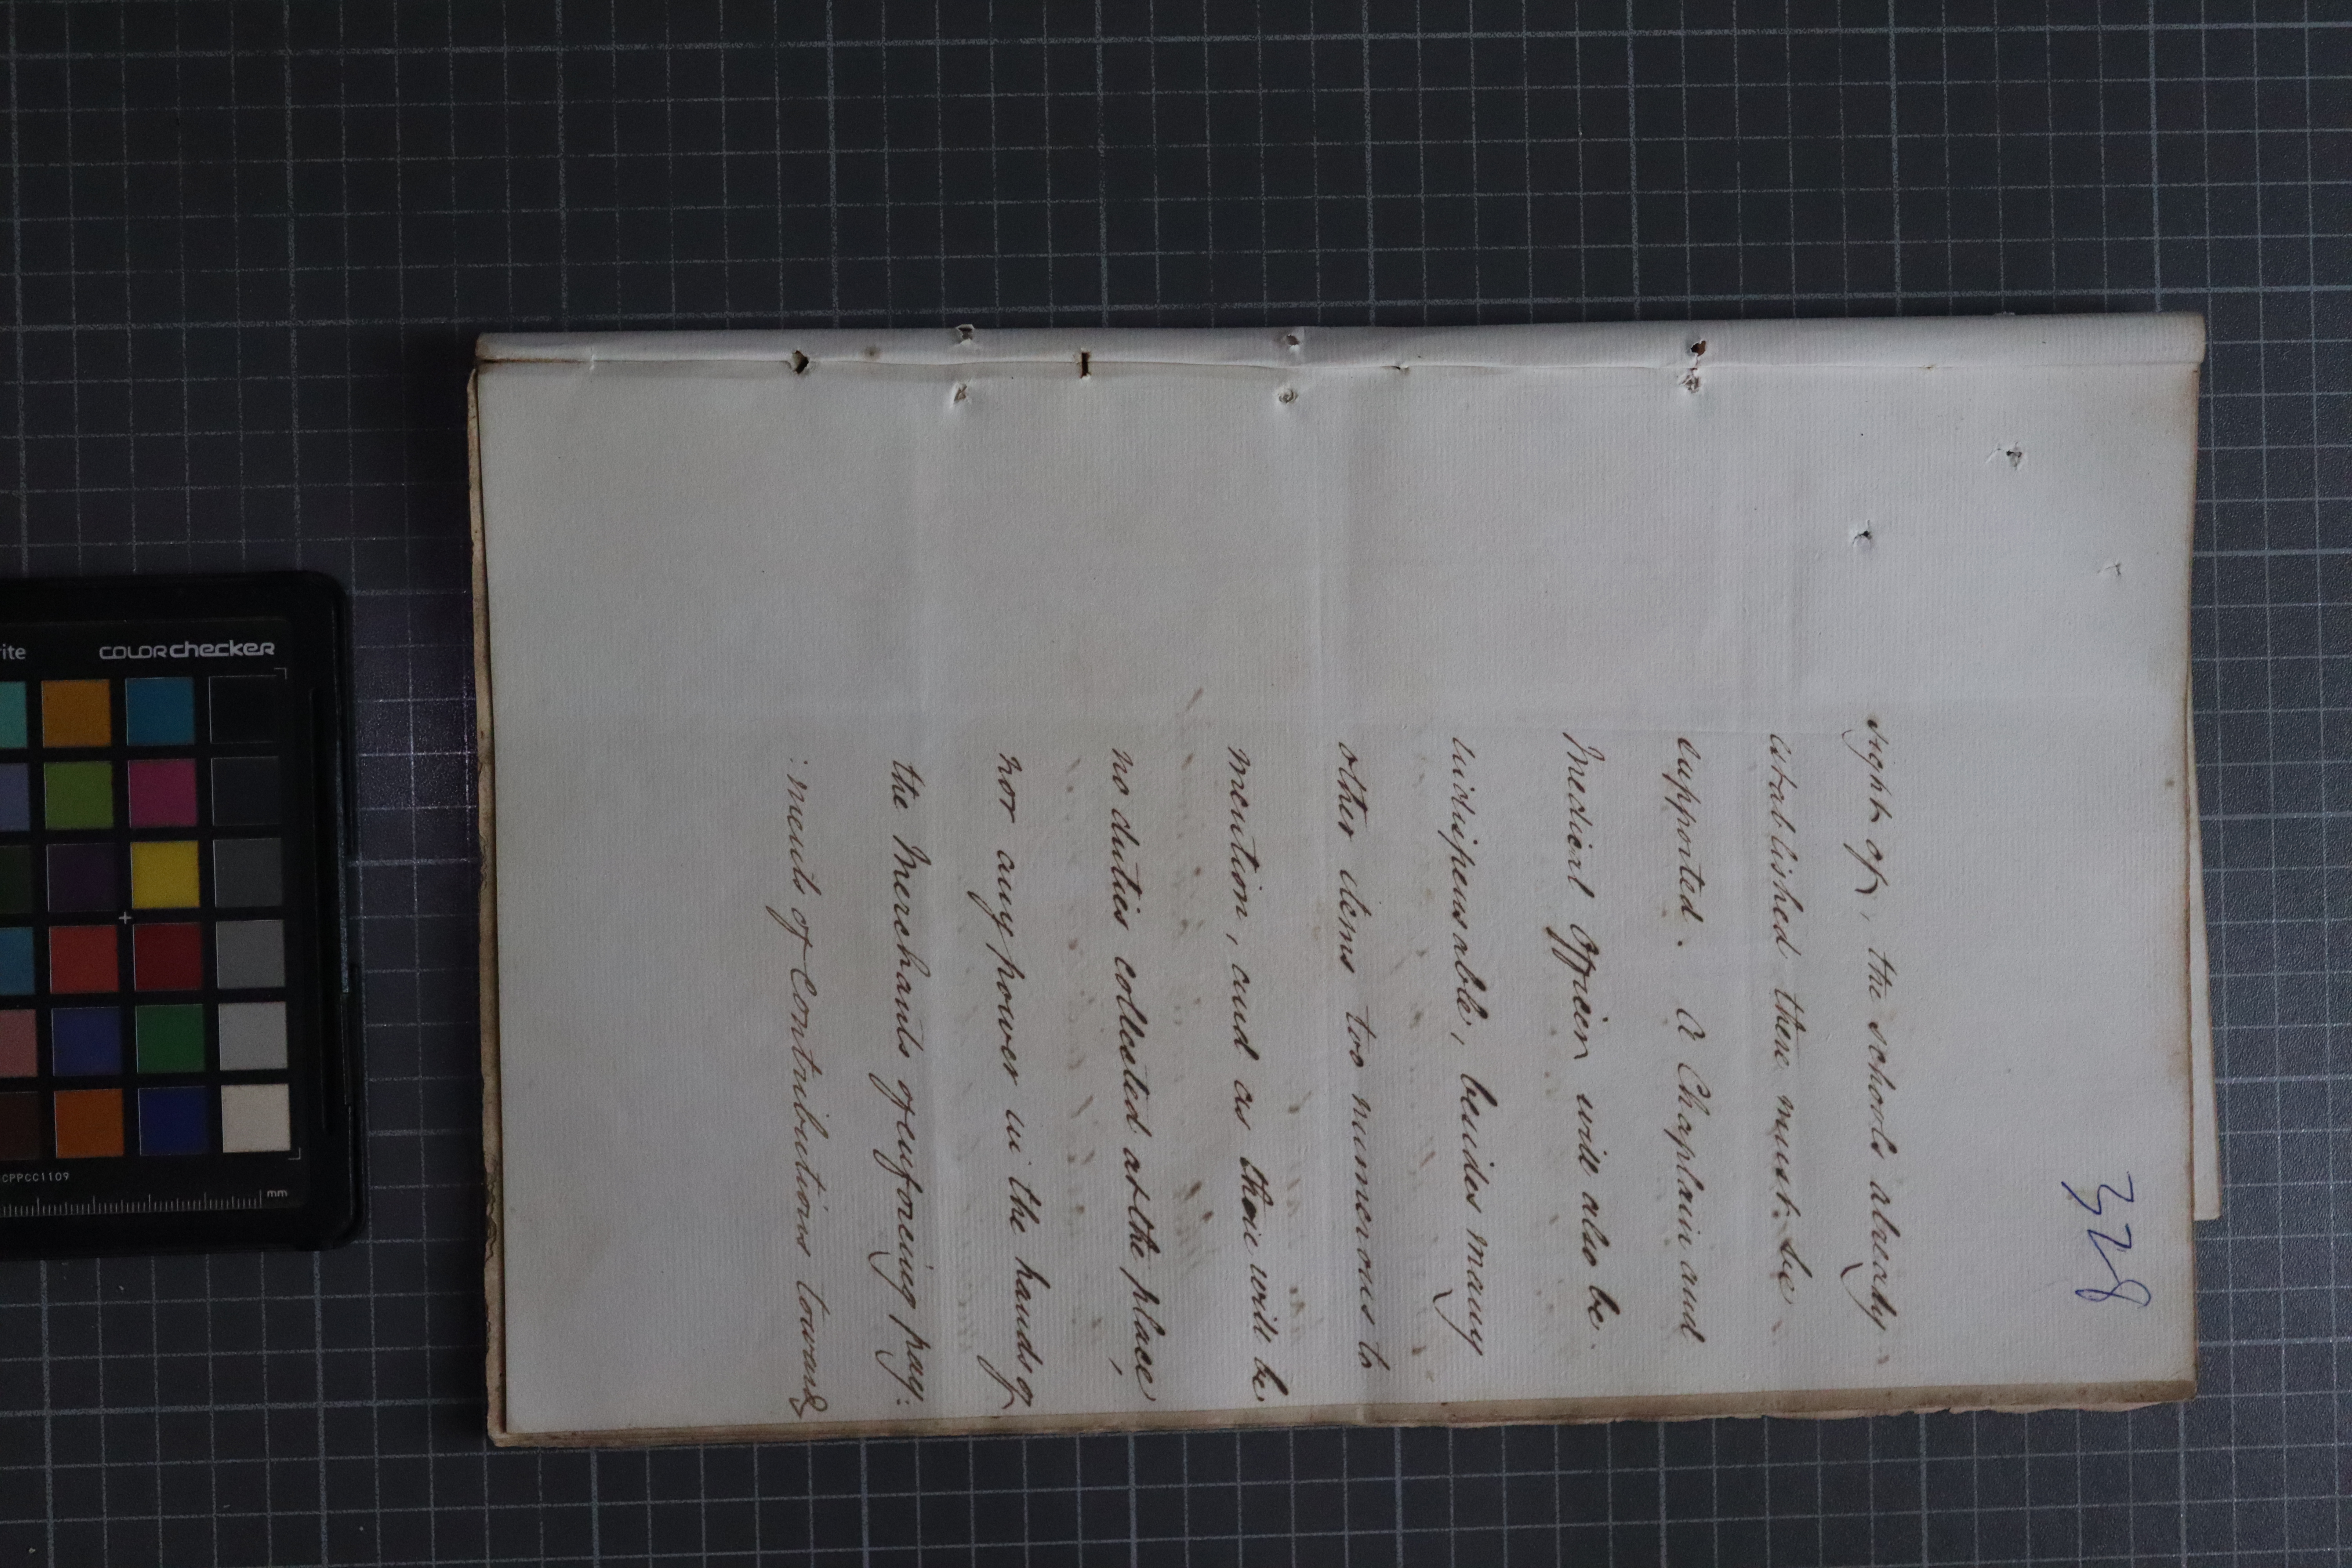 328
sight of, the schools already
established there must be
supported. A Chaplain and
Medical Officer will also be
indispensable, besides many
other items too numerous to
mention, and as there will be
no duties collected at the place,
nor any power in the hands of
the Merchants of enforcing pay:
:ments of Contributions towards
rite
COLORchecker
CPPCC1109
mm